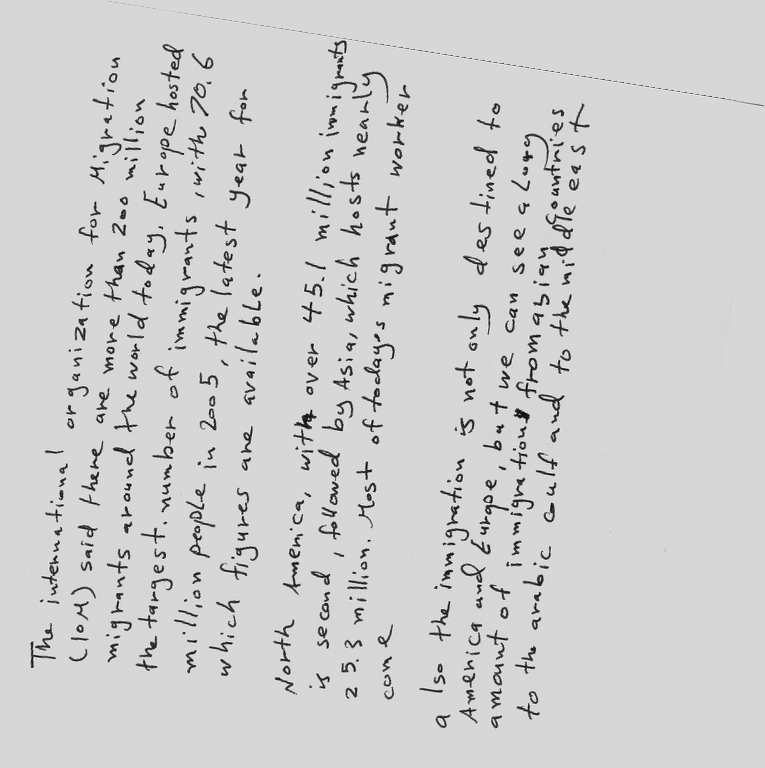 The international organization for Migration
(IOM) said there are more than 200 million
migrants around the world today. Europe hosted
the targest. number of immigrants, with 70.6
million people in 2005, the latest year for
which figures are available.
North America, with over 45.1 million immigrants
is second, followed by Asia, which hosts nearly
25.3 million. Most of todays migrant worker
come
also the immigration is not only destined to
America and Europe, but we can see a larg
amount of immigration from asian countries
to the arabic gulf and to the middle east